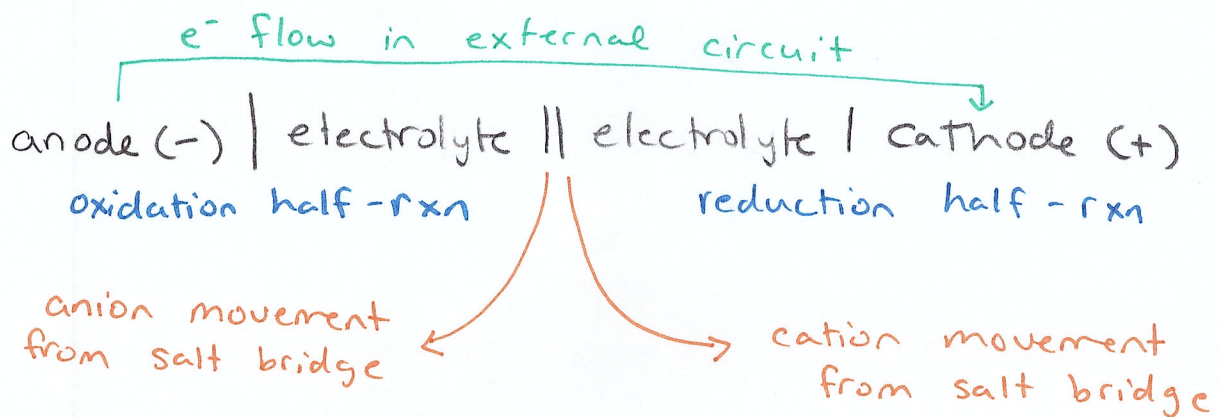 e⁻ flow in external circuit
anode (-) | electrolyte || electrolyte | cathode (+)
oxidation half-rxn
reduction half-rxn
anion movement
from salt bridge
cation movement
from salt bridge